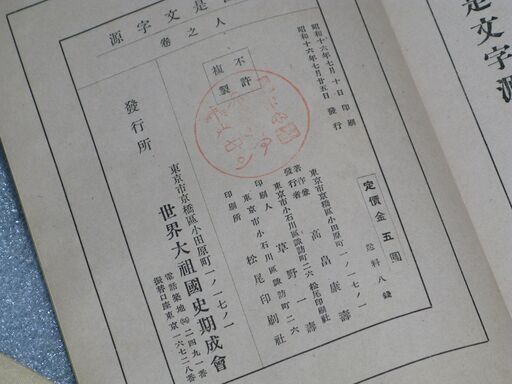 昭和十六年七月十日印刷
昭和十六年七月廿五日發行
定價金五圓
送料八錢
東京市京橋區小田原町一ノ一七ノ一
著作兼發行者 高畠康壽
東京市小石川區諏訪町二六 松尾印刷社
印刷人 草野一壽
東京市小石川區諏訪町二六
印刷所 松尾印刷社
不許複製
發行所
東京市京橋區小田原町一ノ一七ノ一
世界大祖國史期成會
電話築地㊺二四九一番
振替口座東京一六七二八番
是文字源
人之卷
是文字源